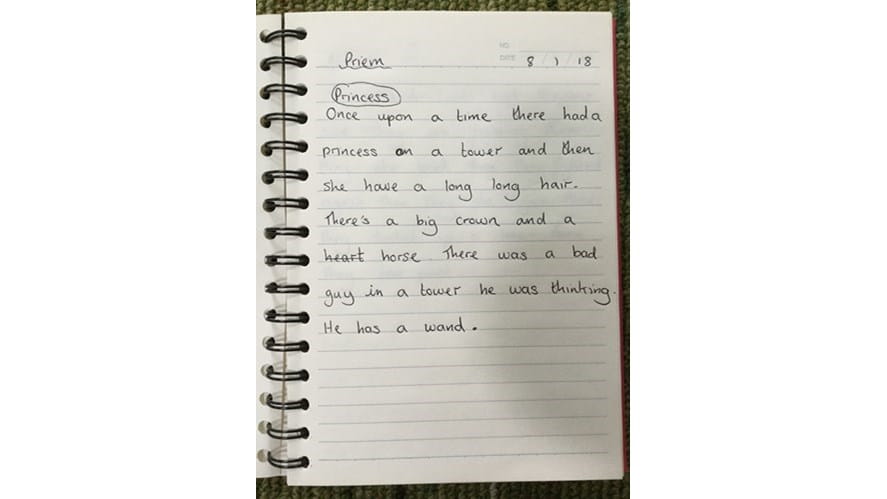 NO.
Priem DATE 8 / 1 / 18
Princess
Once upon a time there had a
princess on a tower and then
she have a long long hair.
There's a big crown and a
heart horse There was a bad
guy in a tower he was thinking.
He has a wand.